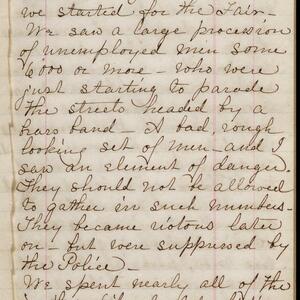 we started for the Fair -
We saw a large procession
of unemployed men some
6,000 or more - who were
just starting to parade
the streets headed by a
brass band - A bad, rough
looking set of men - and I
saw an element of danger.
They should not be allowed
to gather in such numbers -
They became riotous later
on - but were suppressed by
the Police -
We spent nearly all of the